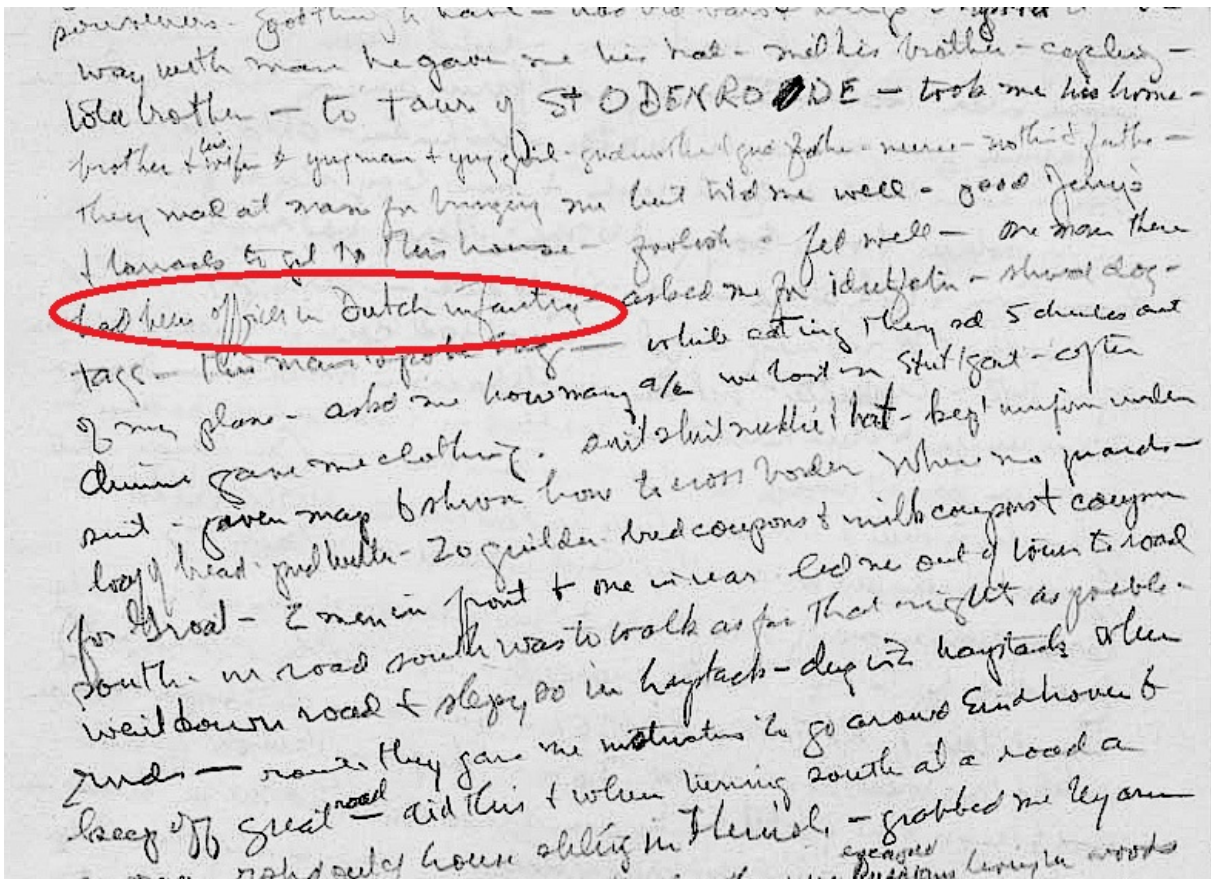 souvenirs - good thing to have - had
way with man he gave me his hat - met his brother - cycling -
told brother - to town of St ODENRODE - took me his home -
brother & his wife & yung man & yung girl - - nurse - mother & father -
They mad at man for bringing me but trtd me well - good Jerrys
& barracks to get to this house - foolish - fed well - one man there
had been officer in Dutch infantry - asked me for - showd dog -
tags - this man spoke Eng - while eating They sd 5 chutes out
of my plane - askd me how many a/c we lost on Stuttgart - after
dinner gave me clothing. suit shirt necktie & hat - kept uniform under
suit - given map & shown how to cross border where no guards -
loaf of bread and butter - 20 guilder bred coupons & milk coupons & coupon
for - 2 men in front & one in rear led me out of town to road
south - on road south was to walk as far that night as possble -
went down road & sleep, so in haystack - dug in 2 haystacks when
- route they gave me instructions to go around Eindhoven &
keep off great road - did this & when turning south at a road a
house - grabbed me by arm
living in woods